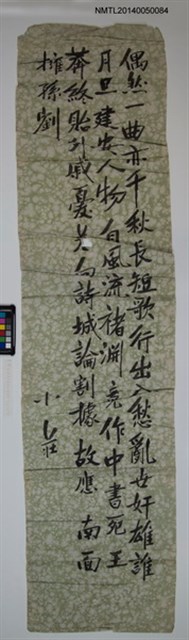 NMTL20140050084
偶然一曲亦千秋長短歌行出入愁亂世奸雄誰
月旦建安人物自風流褚淵竟作中書死王
莽終貽列戚憂若向詩城論割據故應南面
擁孫劉
小莊